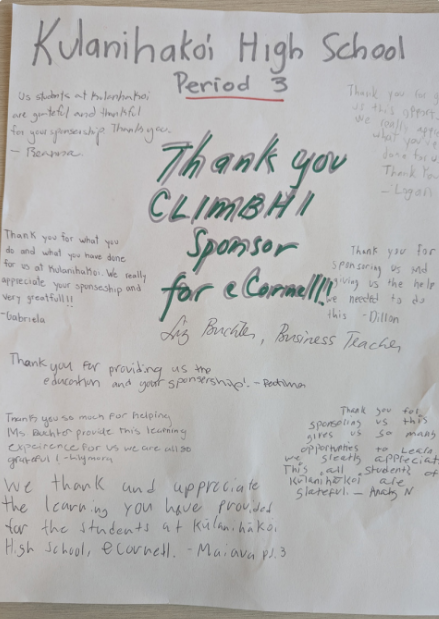 Kulanihakoi High School
Period 3
Us students at Kulanihakoi
are grateful and thankful
for your sponsership. Thank you.
Thank you for
us this
We really
what you
done for
Thank You
- Logan
Thank you
CLIMBHI
Sponsor
for eCornell!!
Thank you for what you
do and what you have done
for us at Kulanihakoi. We really
appreciate your sponseship and
very greatfull!!
-Gabriela
Thank you for
sponsoring us and
giving us the help
we needed to do
this - Dillon
Liz Buchter, Business Teacher
Thank you for providing us the
education and your sponsership!
Thank you so much for helping
Ms Buchter provide this learning
expeirence for us we are all so
grateful!
Thank you for
sponsoring us this
gives us so many
opportunities to learn
we greatly appreciate
This, all students of
Kulanihakoi are
grateful. -
We thank and appreciate
the learning you have provided
for the students at Kūlanihākoi
High School, eCornell. - Maiava pd. 3